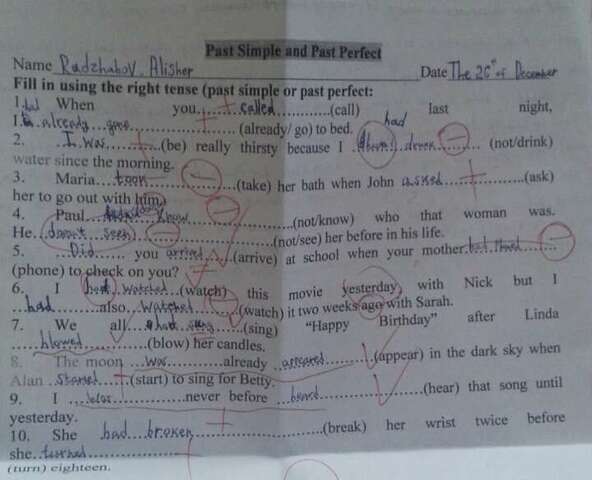 Past Simple and Past Perfect
Name Radzhabov. Alisher Date The 26th of December
Fill in using the right tense (past simple or past perfect:
1. When you called (call) last night,
I already gone (already/ go) to bed.
had
2. I was (be) really thirsty because I (not/drink)
water since the morning.
3. Maria took (take) her bath when John asked (ask)
her to go out with him.
4. Paul know (not/know) who that woman was.
He doesn't seen (not/see) her before in his life.
5. Did you arrived (arrive) at school when your mother had
(phone) to check on you?
6. I had watched (watch) this movie yesterday with Nick but I
had also watched (watch) it two weeks ago with Sarah.
7. We all (sing) "Happy Birthday" after Linda
blowed (blow) her candles.
8. The moon was already (appear) in the dark sky when
Alan started (start) to sing for Betty.
9. I never before heard (hear) that song until
yesterday.
10. She had broken (break) her wrist twice before
she turned
(turn) eighteen.